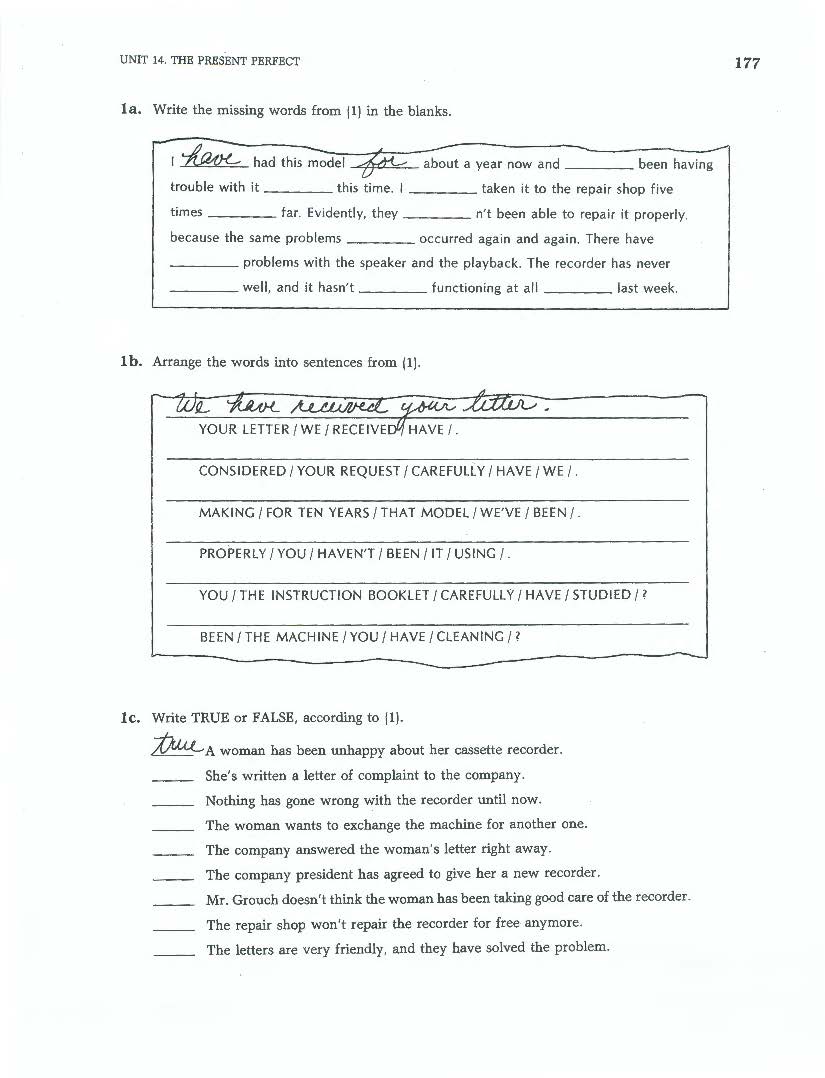 UNIT 14. THE PRESENT PERFECT 177
1a. Write the missing words from (1) in the blanks.
I have had this model for about a year now and ________ been having
trouble with it ________ this time. I ________ taken it to the repair shop five
times ________ far. Evidently, they ________ n't been able to repair it properly,
because the same problems ________ occurred again and again. There have
________ problems with the speaker and the playback. The recorder has never
________ well, and it hasn't ________ functioning at all ________ last week.
1b. Arrange the words into sentences from (1).
We have received your letter.
YOUR LETTER / WE / RECEIVED / HAVE / .
CONSIDERED / YOUR REQUEST / CAREFULLY / HAVE / WE / .
MAKING / FOR TEN YEARS / THAT MODEL / WE'VE / BEEN / .
PROPERLY / YOU / HAVEN'T / BEEN / IT / USING / .
YOU / THE INSTRUCTION BOOKLET / CAREFULLY / HAVE / STUDIED / ?
BEEN / THE MACHINE / YOU / HAVE / CLEANING / ?
1c. Write TRUE or FALSE, according to (1).
true A woman has been unhappy about her cassette recorder.
_____ She's written a letter of complaint to the company.
_____ Nothing has gone wrong with the recorder until now.
_____ The woman wants to exchange the machine for another one.
_____ The company answered the woman's letter right away.
_____ The company president has agreed to give her a new recorder.
_____ Mr. Grouch doesn't think the woman has been taking good care of the recorder.
_____ The repair shop won't repair the recorder for free anymore.
_____ The letters are very friendly, and they have solved the problem.